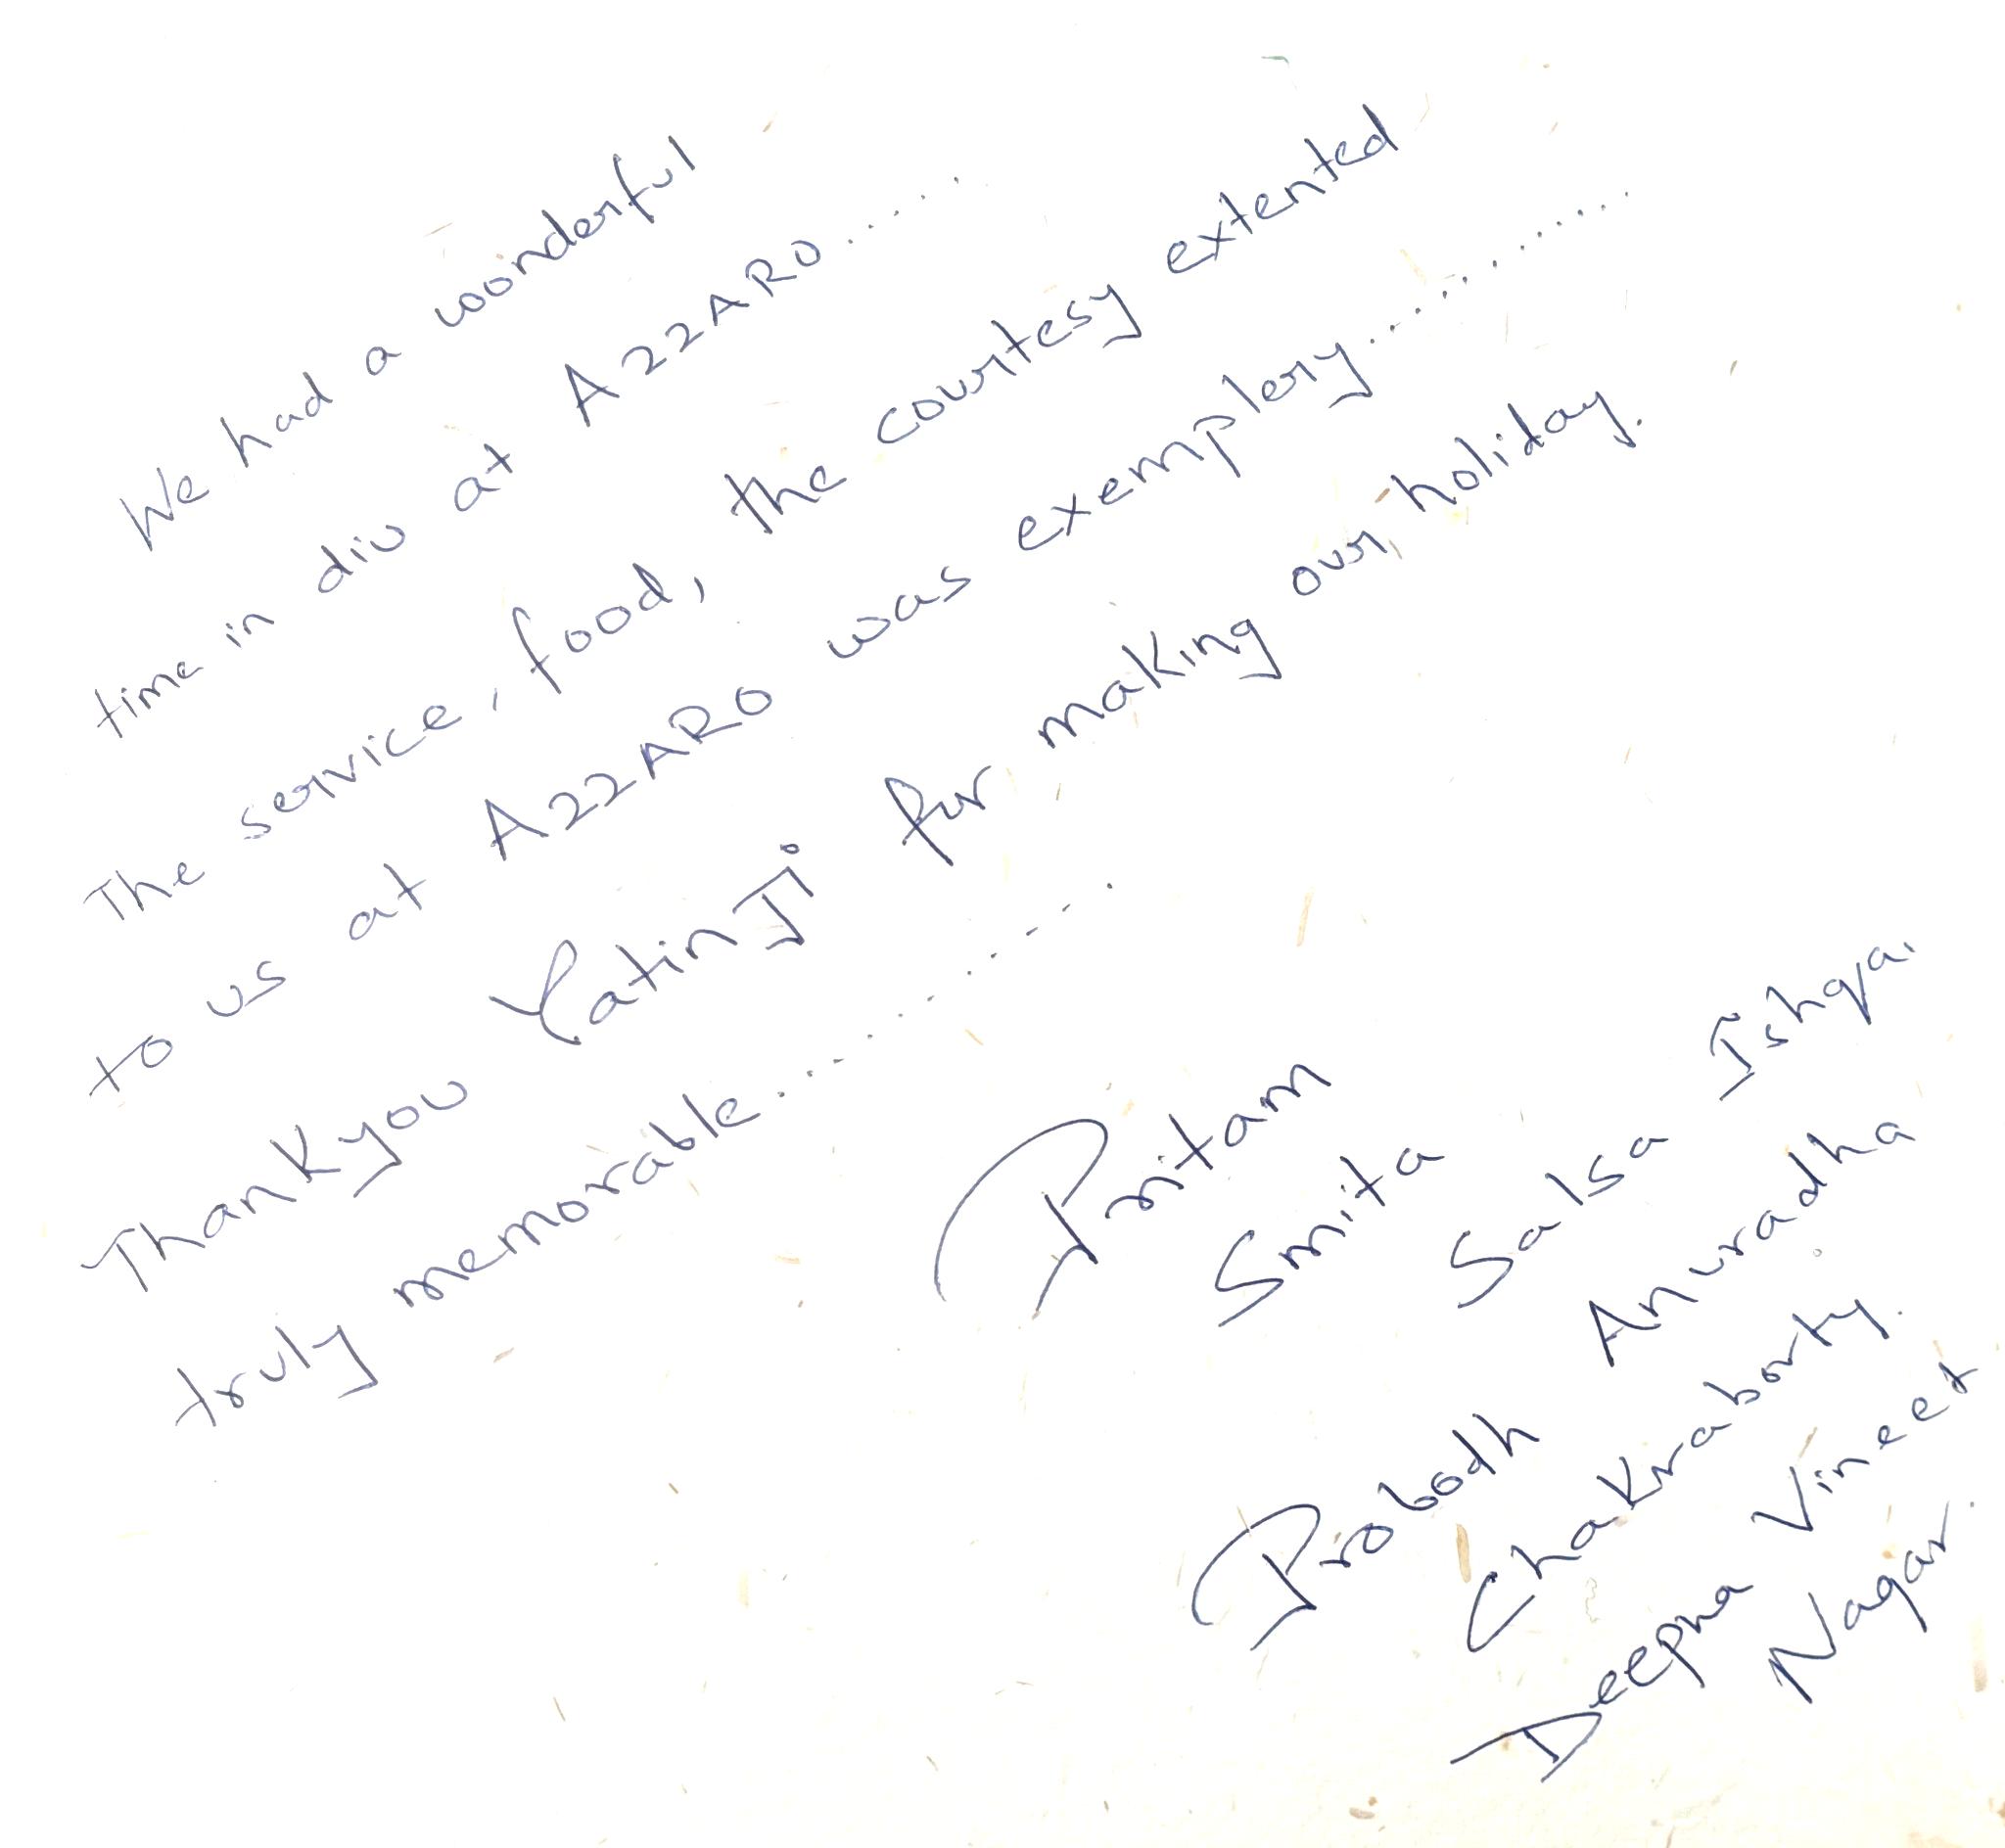 We had a wonderful
time in diu at AZZARO......
The service, food, the courtesy extented
to us at AZZARO was exemplery...........
Thank you Yatin Ji for making our holiday.
truly memorable............
Pritam
Smita
Salsa Ishqa.
Probodh Anuradha
Chakraborty.
Deepna Vineet
Nagar.